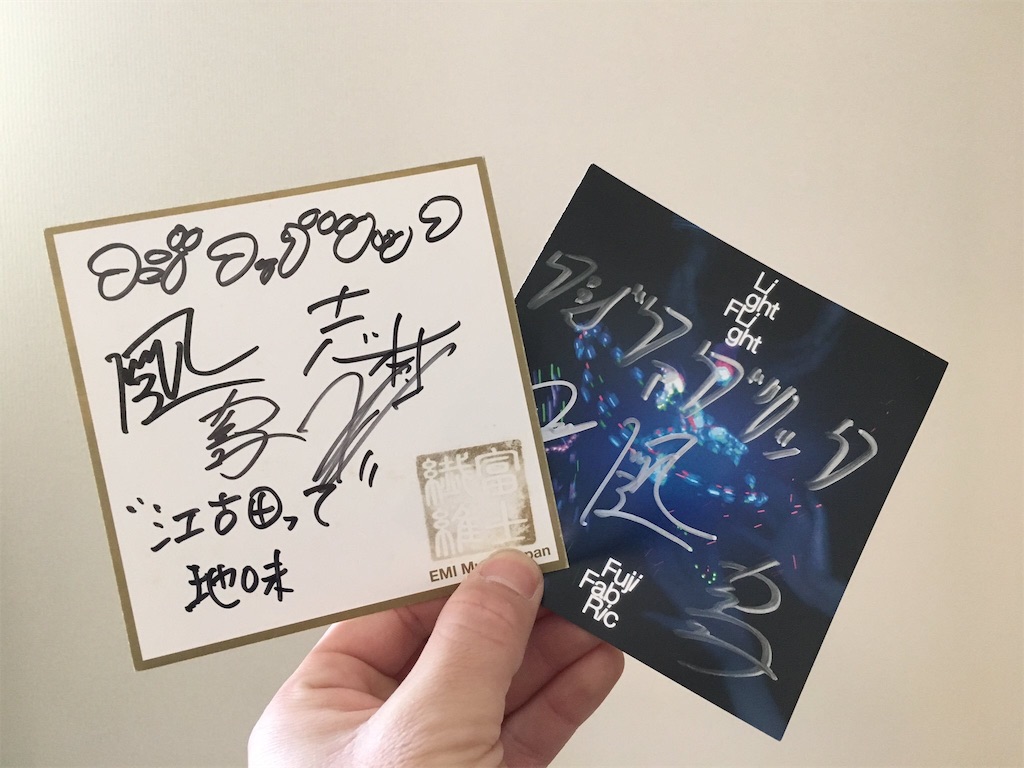 フジファブリック
志村
"江古田って"
地味
富士
繊維
EMI
Li
ght
FLi
ght
フジファブリック
Fuji
Fab
Ric